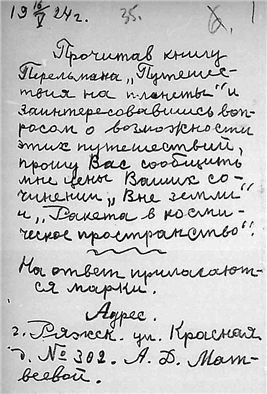 19 16/V 24 г. 35.
Прочитав книгу
Перельмана „Путешес-
твия на планеты" и
заинтересовавшись воп-
росом о возможности
этих путешествий,
прошу Вас сообщить
мне цены Ваших со-
чинений „Вне земли"
и „Ракета в косми-
ческое пространство".
На ответ прилагают-
ся марки.
Адрес.
г. Ряжск. ул. Красная
д. № 302. А. Д. Мат-
веевой.